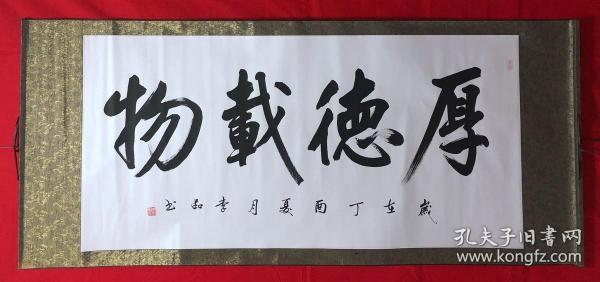 厚德載物
歲在丁酉夏月李品书
孔夫子旧書网
www.kongfz.com